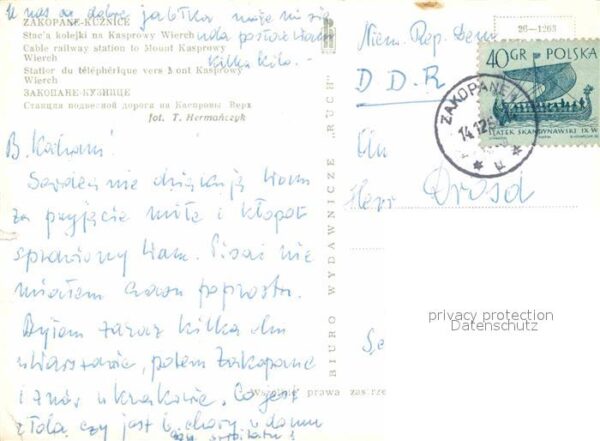 U nas są dobre jabłka może mi się
uda postarać Wam
kilka kilo. —
ZAKOPANE-KUŹNICE
Stac'a kolejki na Kasprowy Wierch
Cable railway station to Mount Kasprowy
Wierch
Station du téléphérique vers Mont Kasprowy
Wierch
ЗАКОПАНЕ-КУЗНИЦЕ
Станция подвесной дороги на Каспровы Верх
fot. T. Hermańczyk
B. Kochani!
Serdecznie dziękuję Wam
za przyjęcie miłe i kłopot
sprawiony Wam. Pisać nie
miałem czasu poprostu.
Byłem zaraz kilka dni
w Warszawie, potem Zakopane
i znów w Krakowie. Co jest
z Tolą, czy jest chory w domu
czy szpitalu?
BIURO WYDAWNICZE „RUCH"
Wszelkie prawa zastrze
26—1263
Niem. Rep. Dem
D. D. R
An
Herr Drosd
40 GR POLSKA
STATEK SKANDYNAWSKI IX W
ZAKOPANE
14.12
privacy protection
Datenschutz